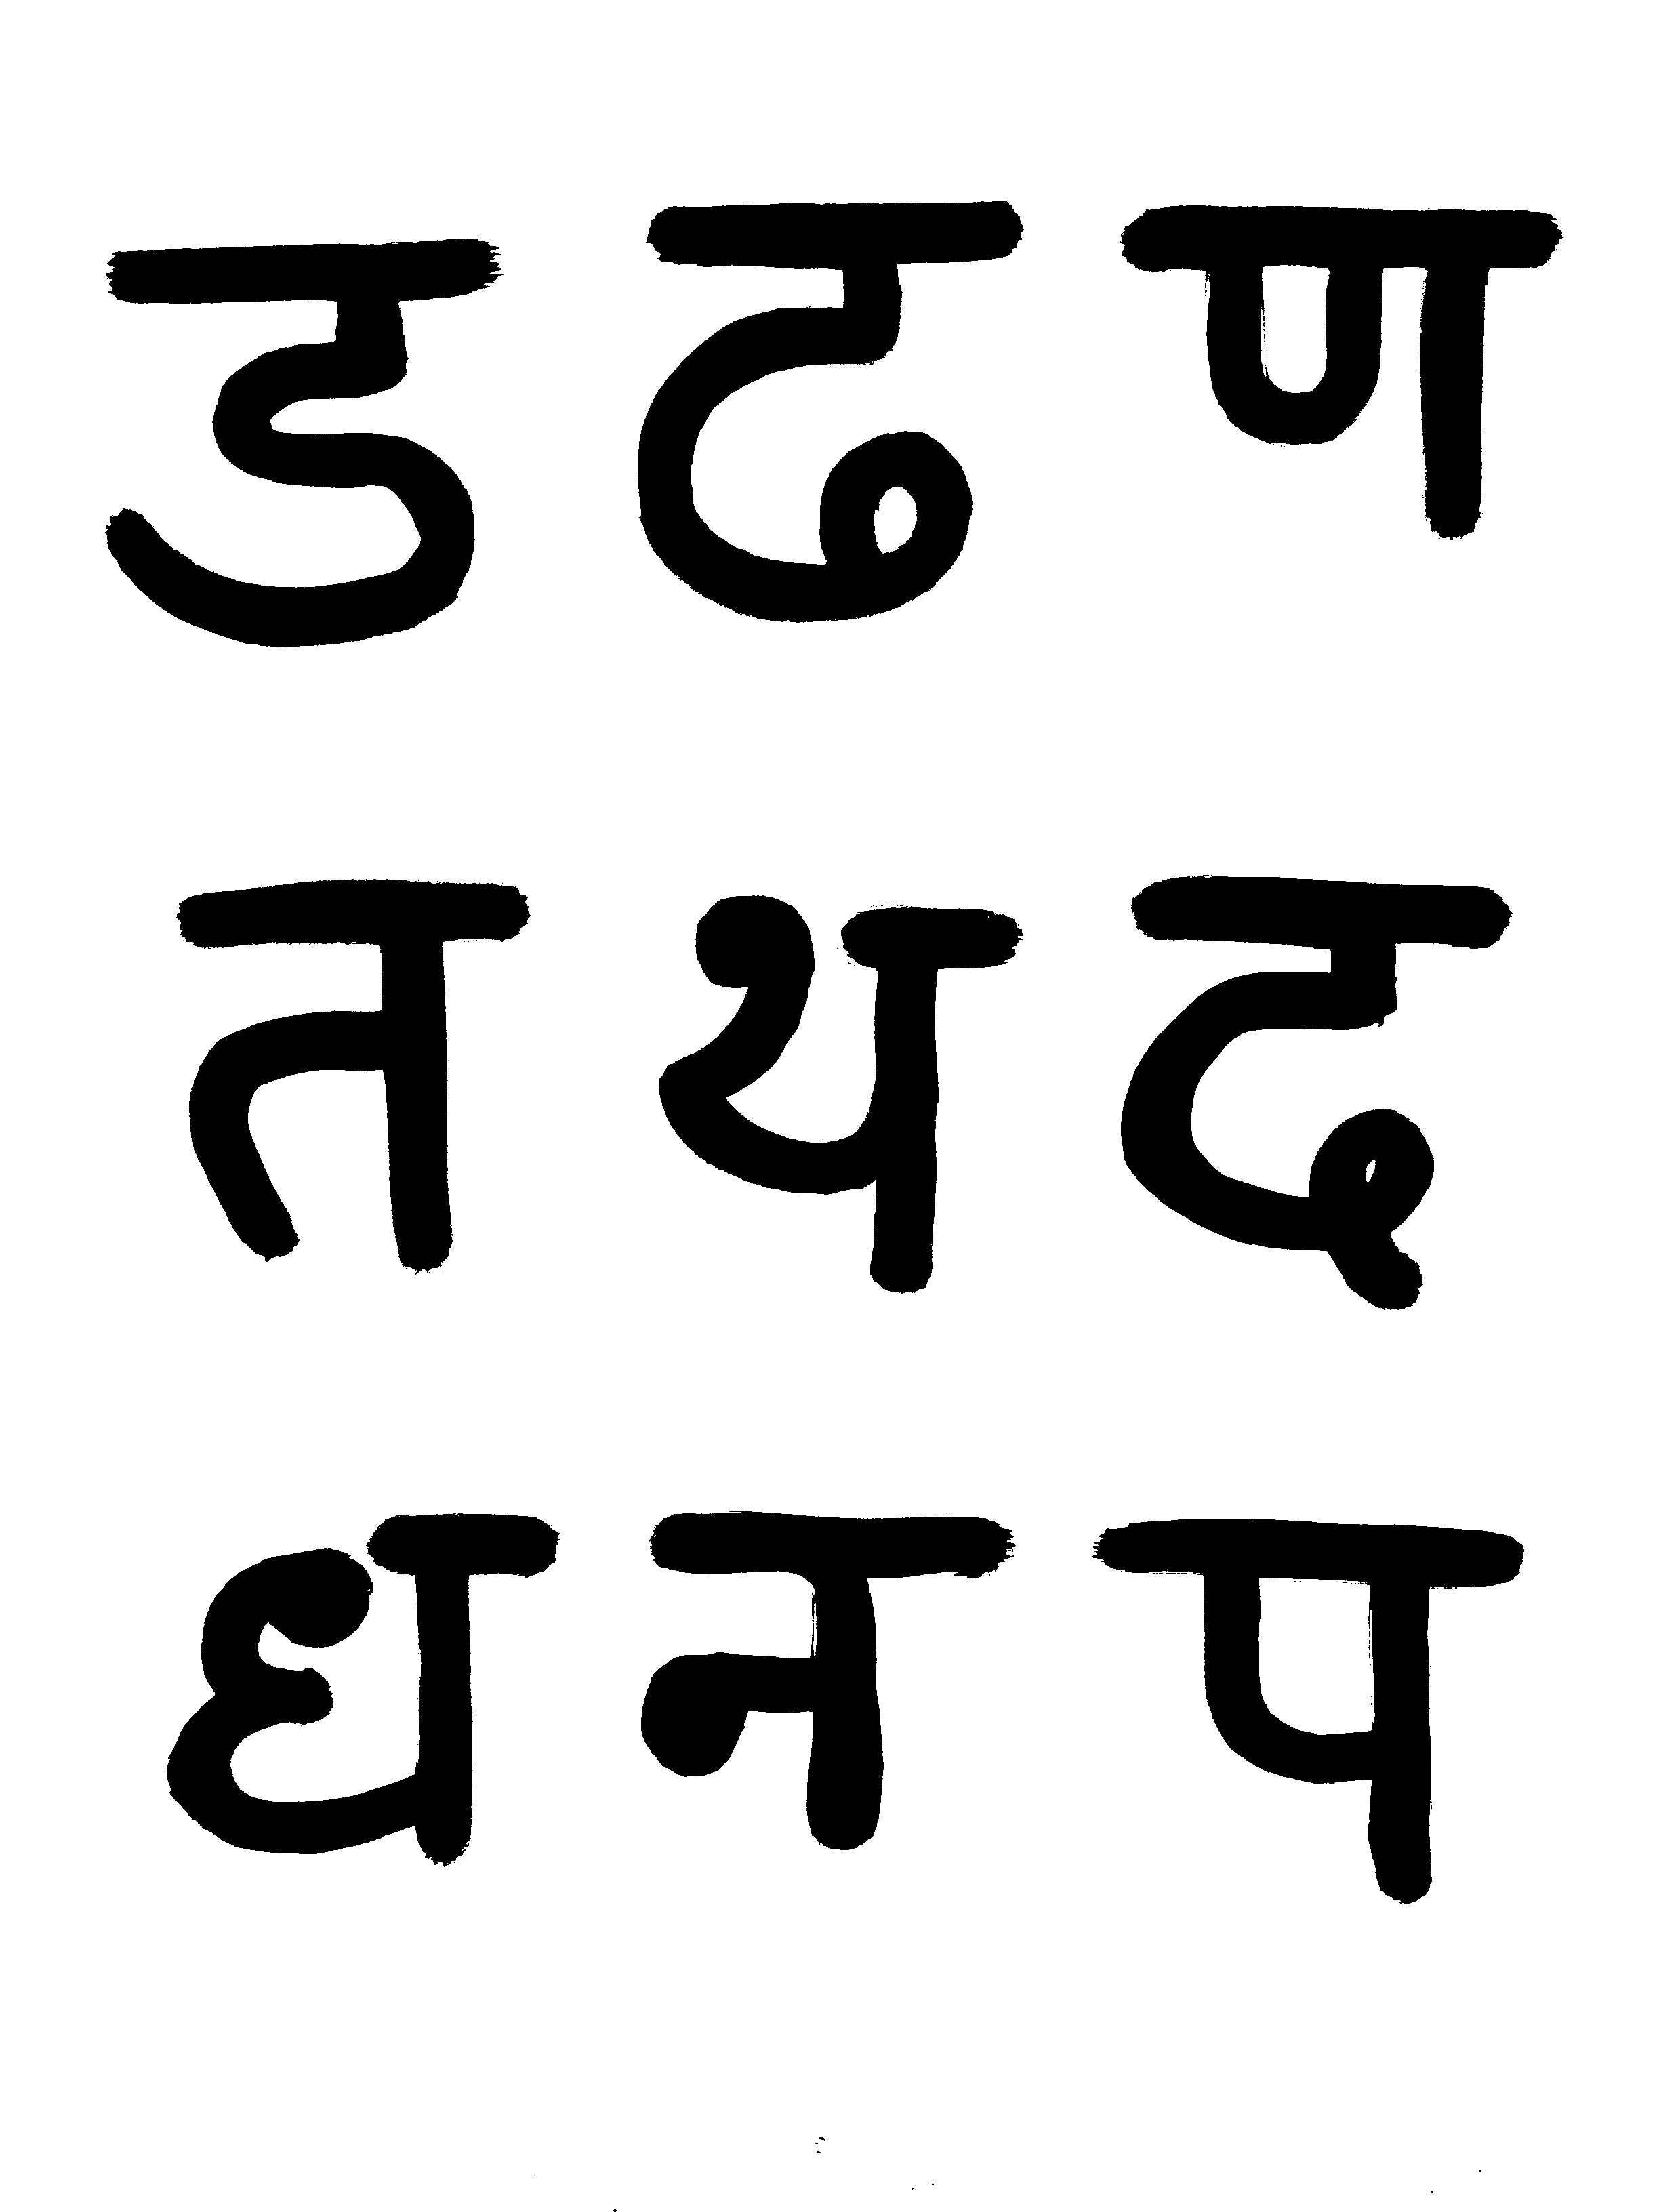 ड ढ ण
त थ द
ध न प